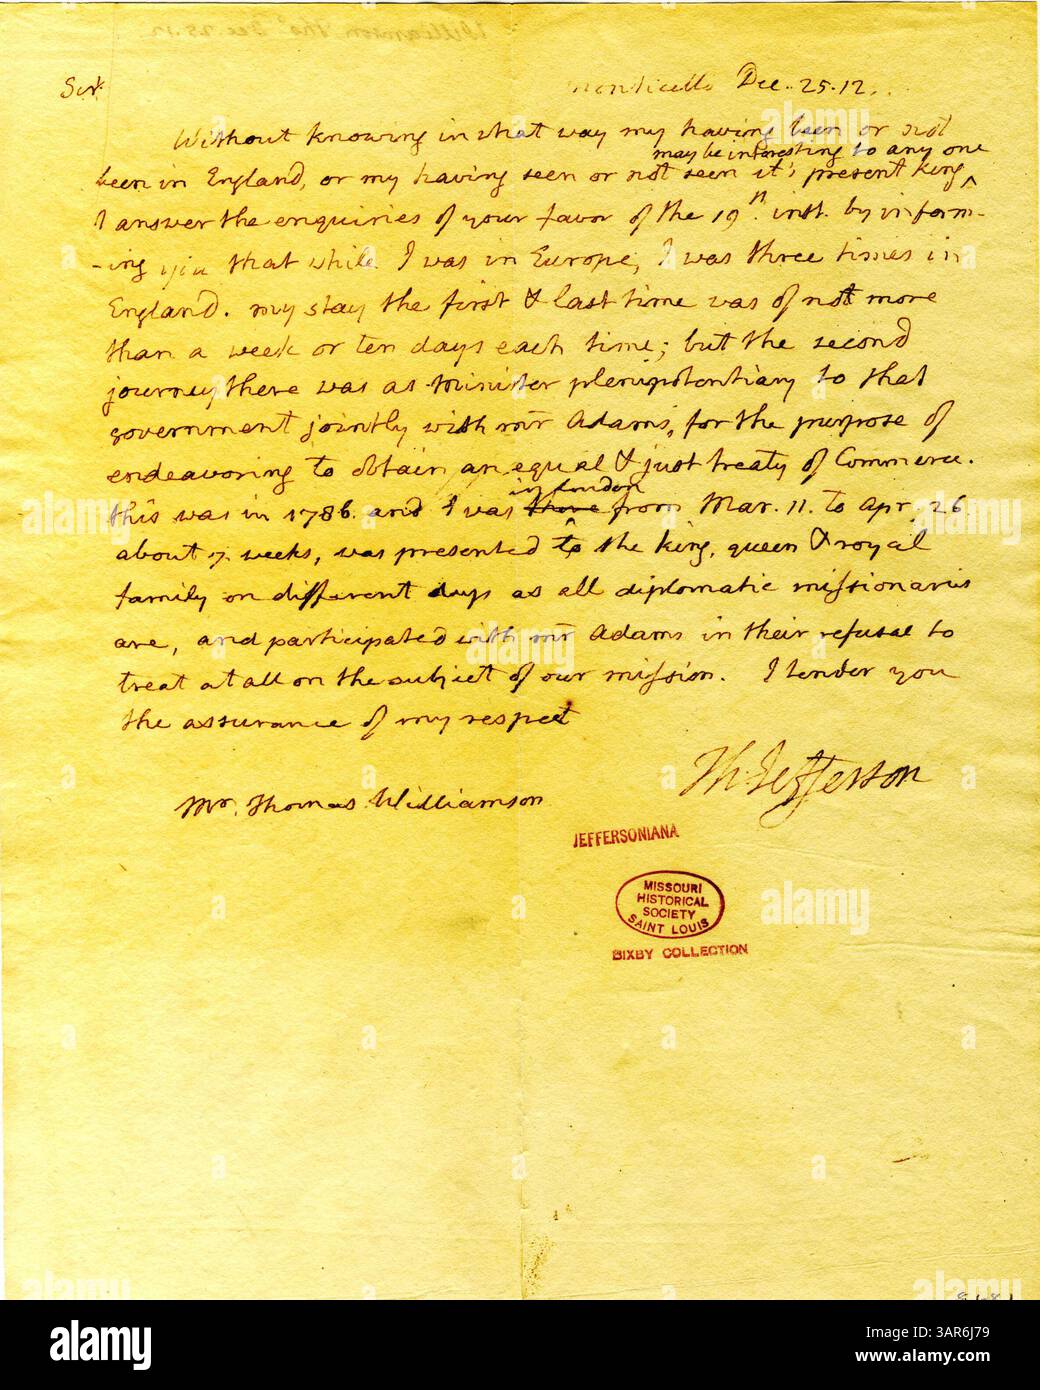 Sir
Monticello Dec. 25. 12.
Without knowing in what way my having been or not
may be interesting to any one
been in England, or my having seen or not seen it's present king ^
I answer the enquiries of your favor of the 19th. inst. by inform-
-ing you that while I was in Europe, I was three times in
England. my stay the first & last time was of not more
than a week or ten days each time; but the second
journey there was as Minister plenipotentiary to that
government jointly with mr Adams, for the purpose of
endeavoring to obtain an equal & just treaty of Commerce.
in London
this was in 1786. and I was there from Mar. 11. to Apr. 26
about 7. weeks, was presented to the king, queen & royal
family on different days as all diplomatic missionaries
are, and participated with mr Adams in their refusal to
treat at all on the subject of our mission. I tender you
the assurance of my respect
Th: Jefferson
Mr. Thomas Williamson
JEFFERSONIANA
MISSOURI
HISTORICAL
SOCIETY
SAINT LOUIS
BIXBY COLLECTION
alamy
Image ID: 3AR6J79
www.alamy.com